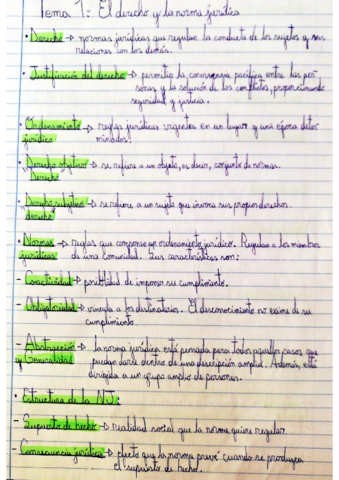 Tema 1: El derecho y la norma jurídica
• Derecho → normas jurídicas que regulan la conducta de los sujetos y sus
relaciones con los demás.
• Justificación del derecho → permitir la convivencia pacífica entre las per-
sonas y la solución de los conflictos, proporcionando
seguridad y justicia.
• Ordenamiento → reglas jurídicas vigentes en un lugar y una época deter-
jurídico minados.
• "Derecho objetivo" → se refiere a un objeto, es decir, conjunto de normas.
Derecho
• "Derecho subjetivo → se refiere a un sujeto que invoca sus propios derechos.
derecho"
• Normas → reglas que componen un ordenamiento jurídico. Regulan a los miembros
jurídicas de una comunidad. Sus características son:
- Coactividad → posibilidad de imponer su cumplimiento.
- Obligatoriedad → vincula a los destinatarios. El desconocimiento no exime de su
cumplimiento.
- Abstracción → la norma jurídica está pensada para todos aquellos casos que
y Generalidad puedan darse dentro de una descripción amplia. Además, está
dirigida a un grupo amplio de personas.
• Estructura de la N.J:
- Supuesto de hecho → realidad social que la norma quiere regular.
- Consecuencia jurídica → efecto que la norma prevé cuando se produzca
el supuesto de hecho.